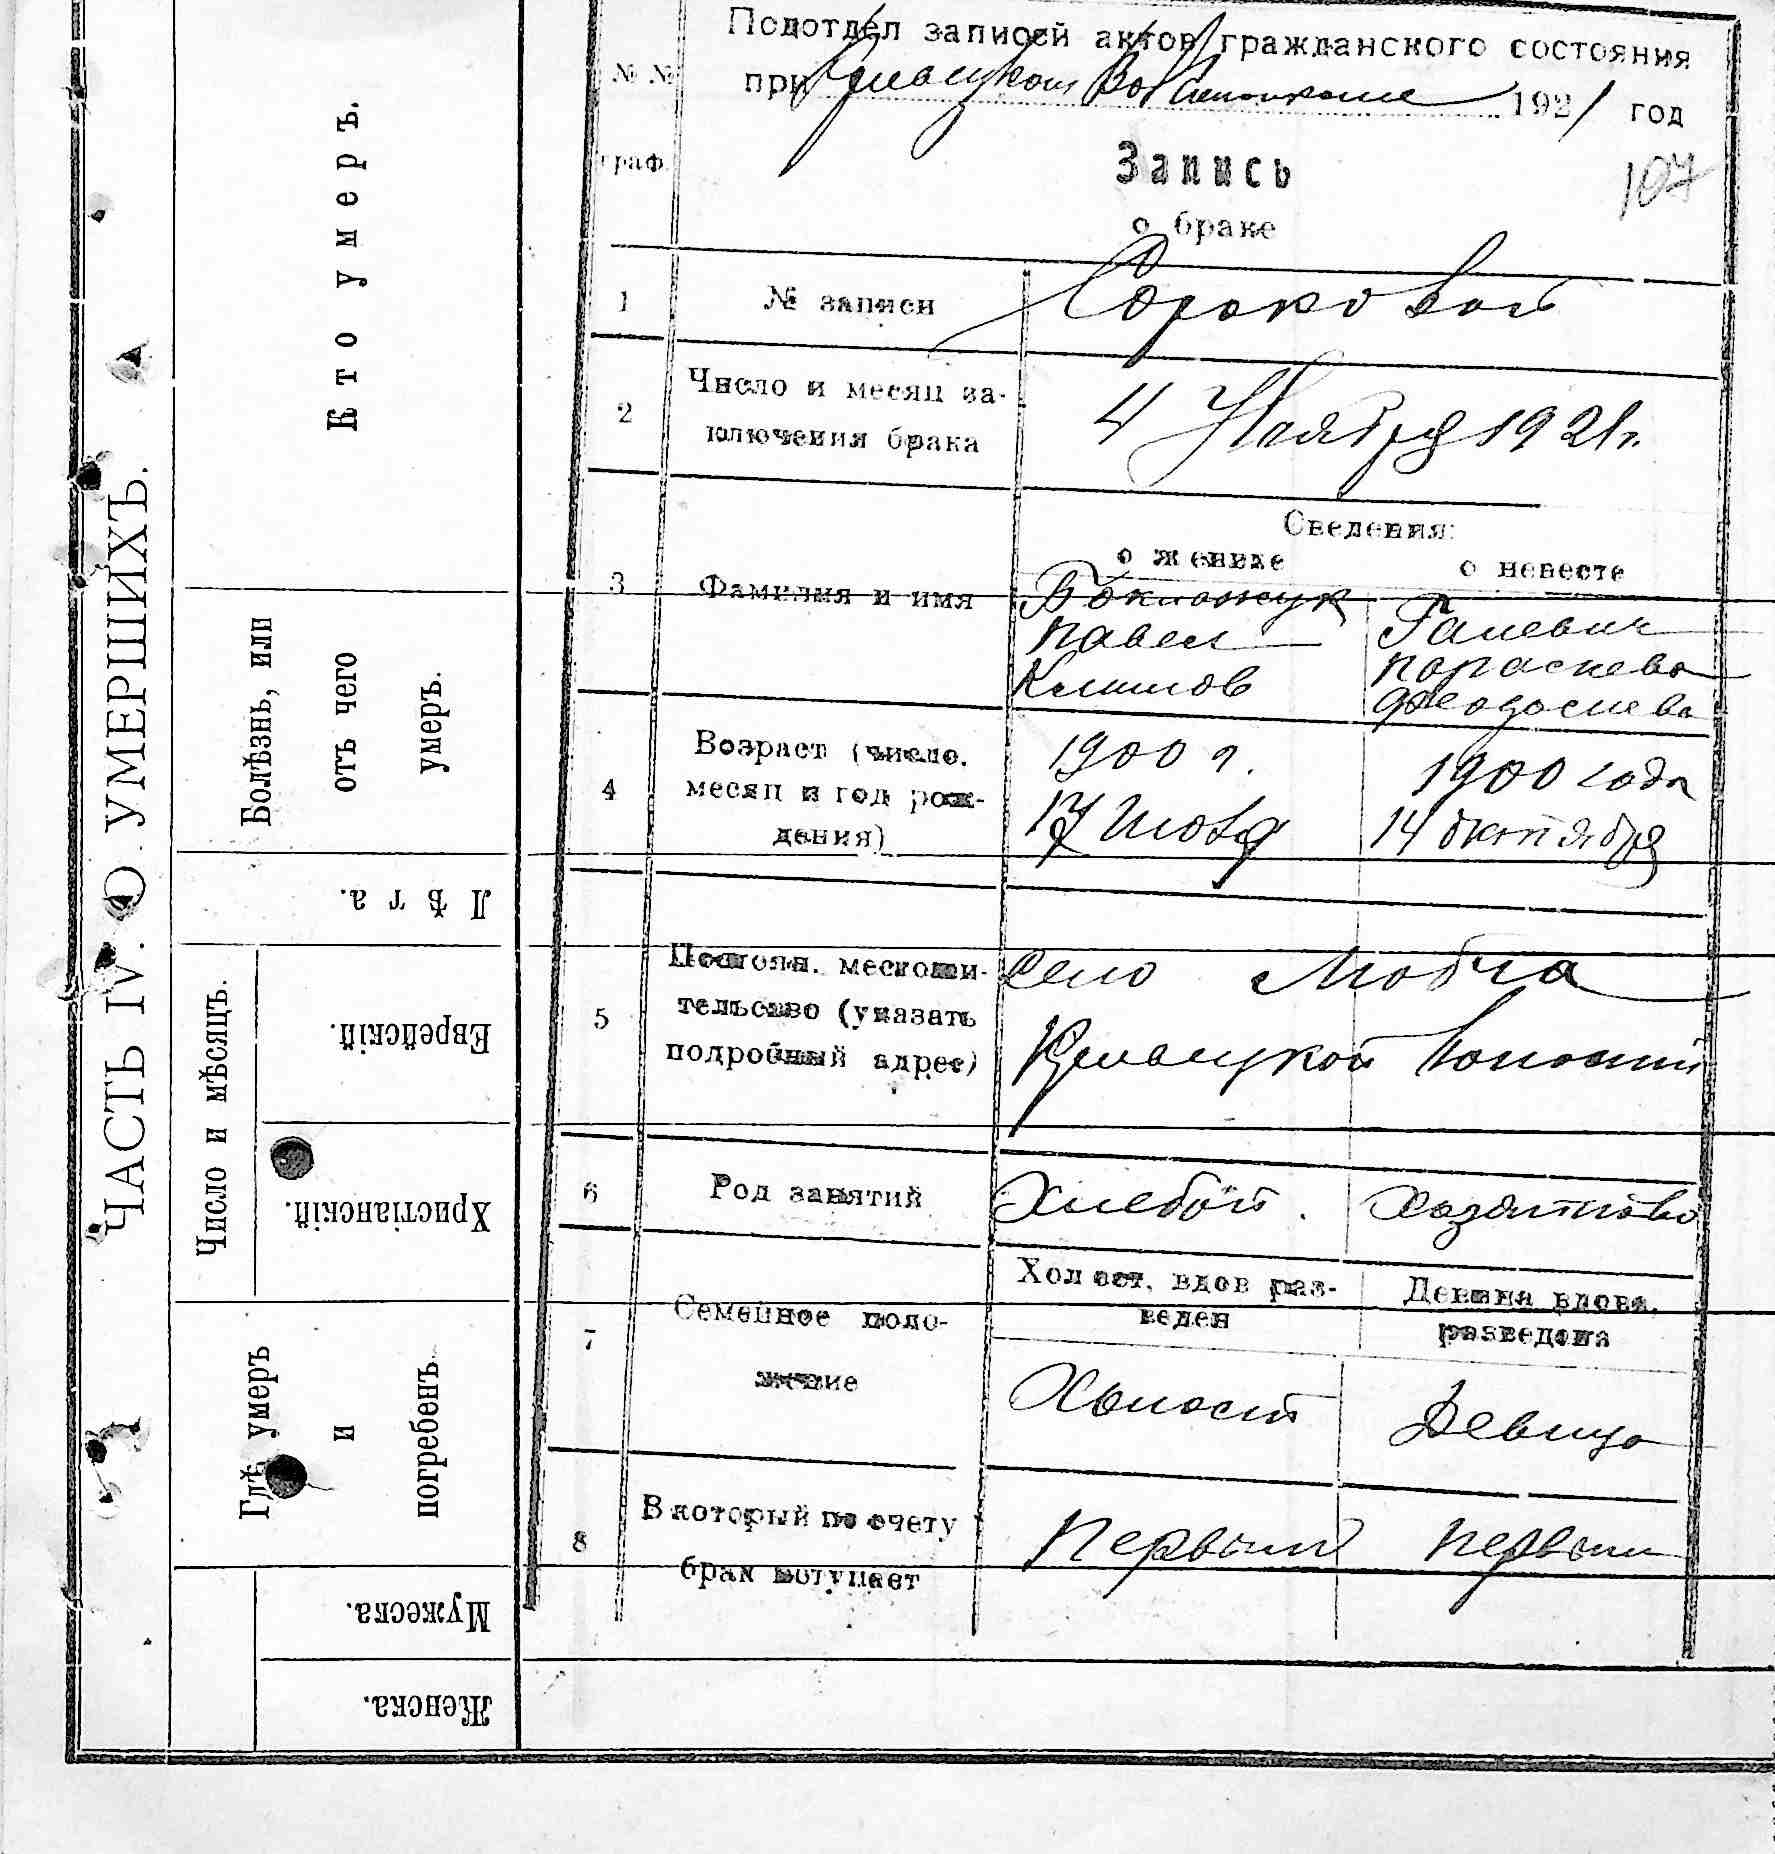 ЧАСТЬ IV. О УМЕРШИХЪ.
Кто умеръ.
Болѣзнь, или
отъ чего
умеръ.
Лѣта.
Число и мѣсяцъ.
Еврейскій.
Христіанскій.
Гдѣ умеръ
и
погребенъ.
Мужеска.
Женска.
Подотдел записей актов гражданского состояния
при 1921 год
№№
граф.
Запись
о браке
107
1 № записи Сороковой
2 Число и месяц за-
ключения брака
4 Ноября 1921 г.
Сведения:
о женихе о невесте
3 Фамилия и имя
Павел
Климов
Галевич
Параскева
Феодосиева
4 Возраст (число,
месяц и год рож-
дения)
1900 г.
17
1900 года
14 октября
5 Постоян. местожи-
тельство (указать
подробный адрес)
село Любча
волости
6 Род занятий Хлебоп. Хозяйство
7 Семейное поло-
жение
Холост, вдов раз-
веден
Девица вдова,
разведена
Холост Девица
8 В который по счету
брак вступает
Первый первый